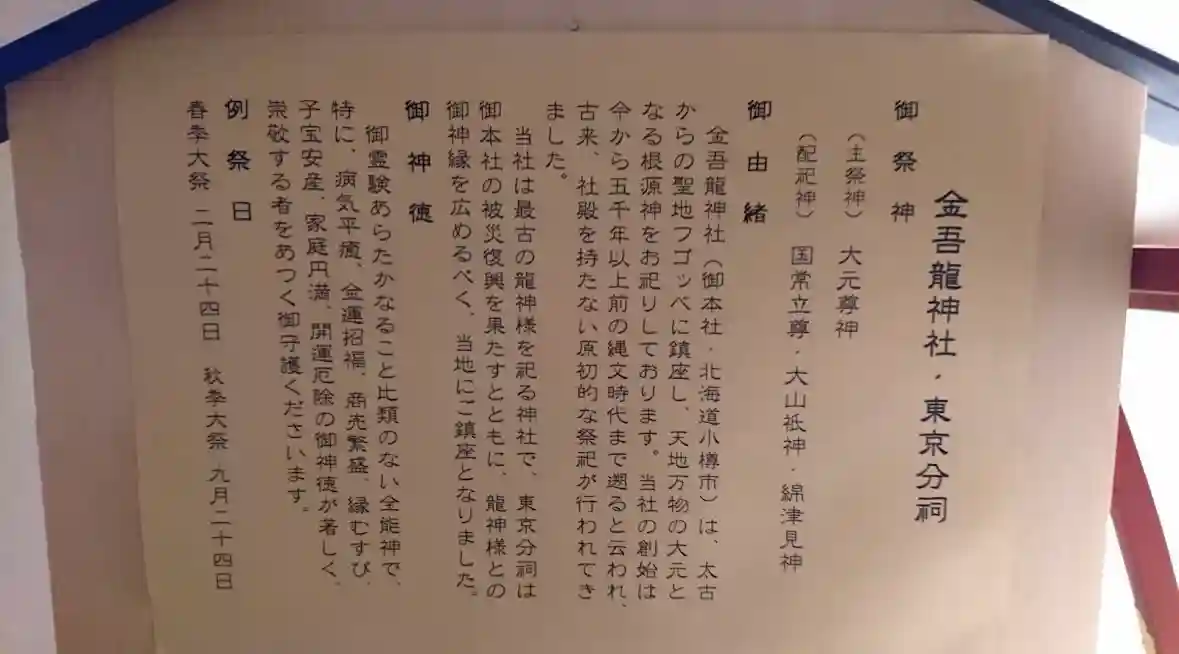 金吾龍神社・東京分祠
御祭神
(主祭神) 大元尊神
(配祀神) 国常立尊・大山祇神・綿津見神
御由緒
金吾龍神社(御本社・北海道小樽市)は、太古
からの聖地フゴッペに鎮座し、天地万物の大元と
なる根源神をお祀りしております。当社の創始は
今から五千年以上前の縄文時代まで遡ると云われ、
古来、社殿を持たない原初的な祭祀が行われてき
ました。
当社は最古の龍神様を祀る神社で、東京分祠は
御本社の被災復興を果たすとともに、龍神様との
御神縁を広めるべく、当地にご鎮座となりました。
御神徳
御霊験あらたかなること比類のない全能神で、
特に、病気平癒、金運招福、商売繁盛、縁むすび、
子宝安産、家庭円満、開運厄除の御神徳が著しく、
崇敬する者をあつく御守護くださいます。
例祭日
春季大祭 二月二十四日 秋季大祭 九月二十四日